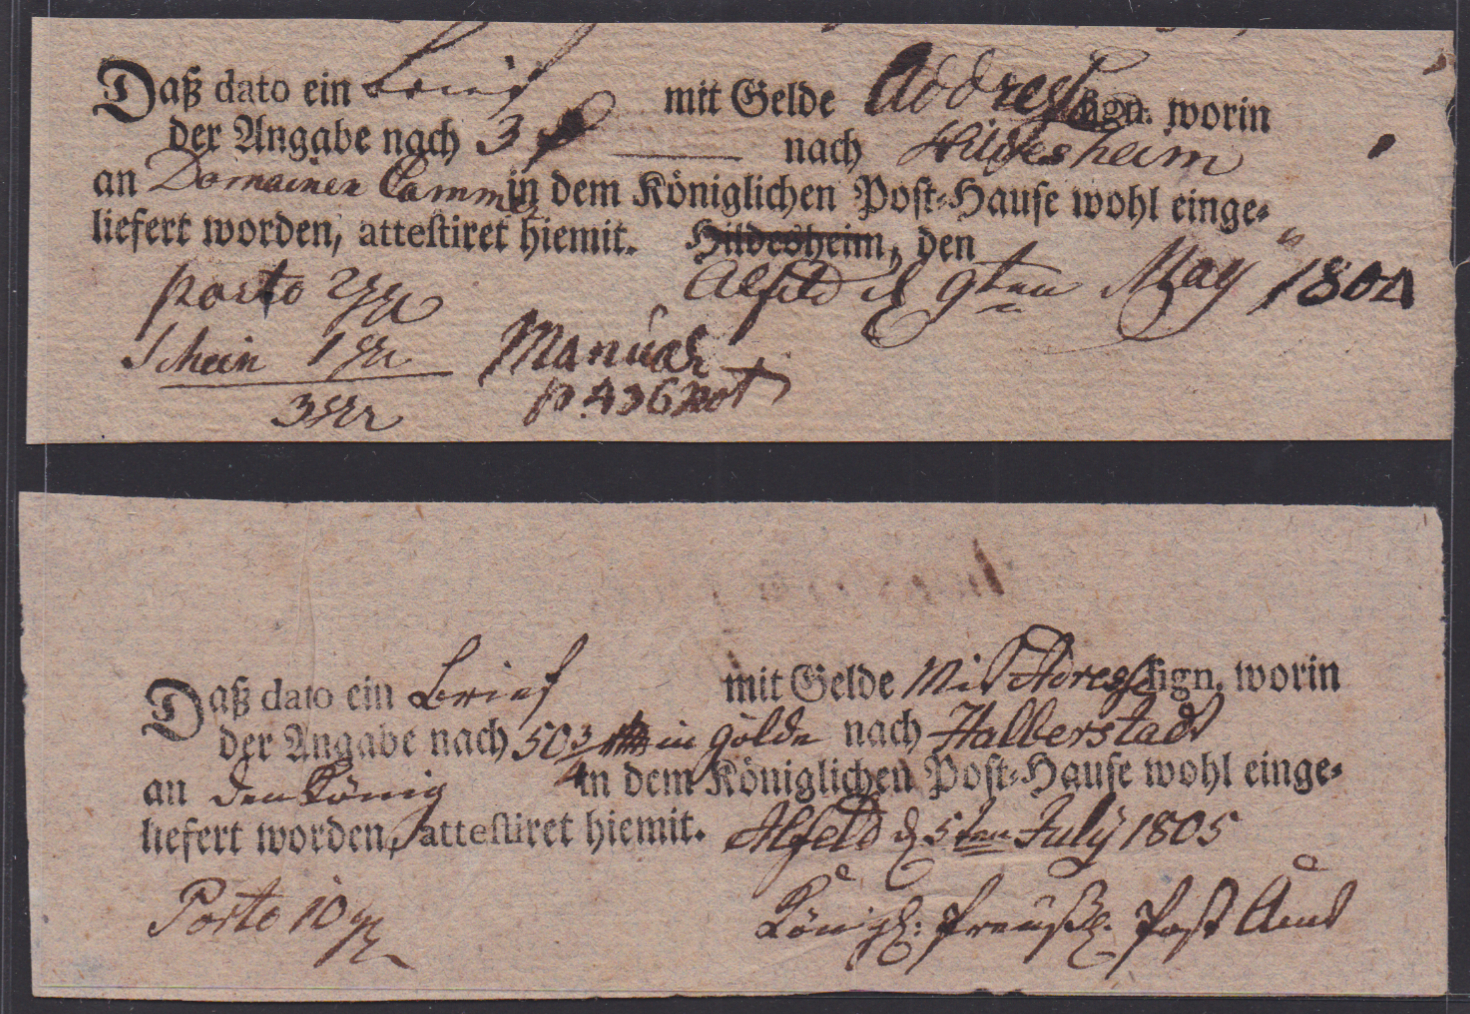 Daß dato ein Brief mit Gelde Addreß sign. worin
der Angabe nach 3 nach Hildesheim
an Domainen Camm in dem Königlichen Post-Hause wohl einge-
liefert worden, attestiret hiemit. Hildesheim, den
Alfeld d 9ten May 1804
porto 2 ggr
Schein 1 ggr
3 ggr
Manual
p. 436 not
Daß dato ein Brief mit Gelde Mit Adreß sign. worin
der Angabe nach 50 3/4 in golde nach Halberstadt
an den König in dem Königlichen Post-Hause wohl einge-
liefert worden, attestiret hiemit. Alfeld d 5ten July 1805
Porto 10 ggr
Königl: Preußl. Post Amt